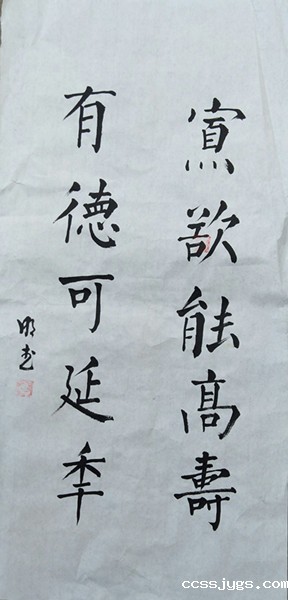 寡欲能高壽
有德可延年
明书
ccssjygs.com